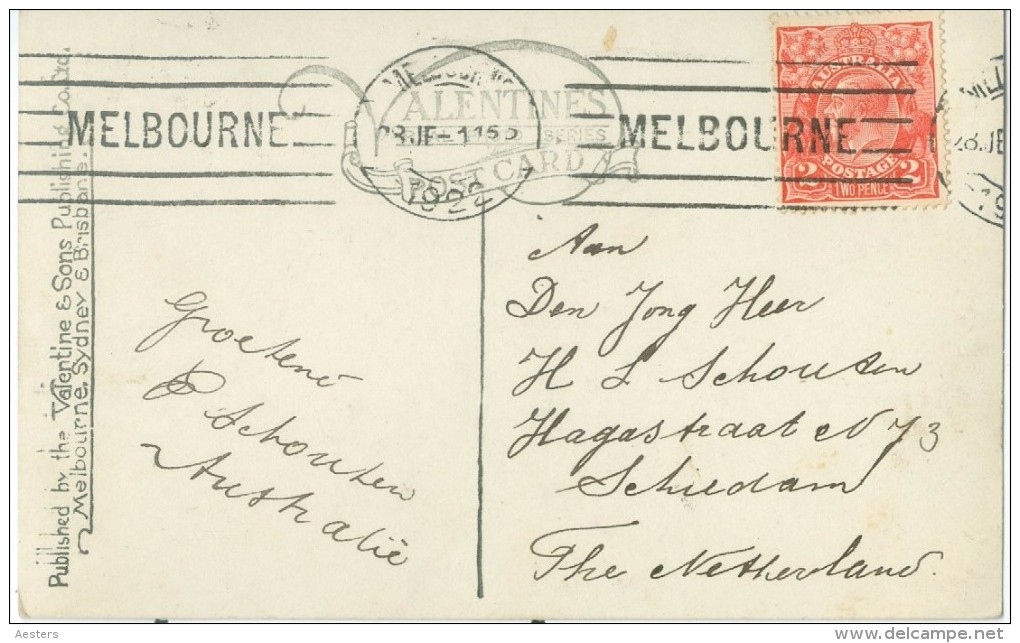 MELBOURNE
28 JE - 1 15 P
1922
VALENTINES
SERIES
POST CARD
MELBOURNE
MELBOURNE
AUSTRALIA
POSTAGE
2 TWO PENCE 2
28 JE
Published by the Valentine & Sons Publishing Co. Ltd.
Melbourne, Sydney & Brisbane.
Groetend
P Schouten
Australië
Aan
Den Jong Heer
H L Schouten
Hagastraat N 73
Schiedam
The Netherland.
Aesters
delcampe.net